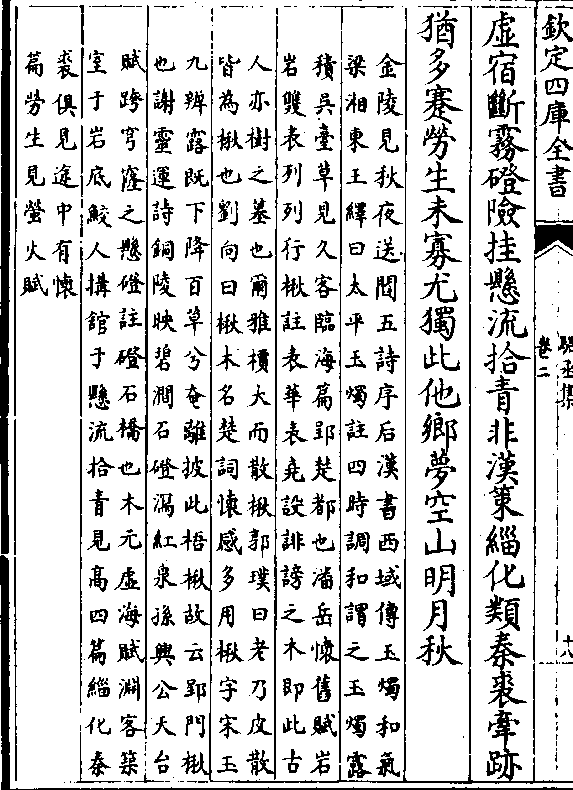 欽定四庫全書
駱丞集
卷二
十八
虛宿斷霧磴險挂懸流拾青非漢策緇化類秦裘牽跡
猶多蹇勞生未寡尤獨此他鄉夢空山明月秋
金陵見秋夜送閻五詩序后漢書西域傳玉燭和氣
梁湘東王繹曰太平玉燭註四時調和謂之玉燭露
積吳臺草見久客臨海篇郢楚都也潘岳懷舊賦岩
岩雙表列列行楸註表華表堯設誹謗之木即此古
人亦樹之墓也爾雅檟大而散楸郭璞曰老乃皮散
皆為楸也劉向曰楸木名楚詞懷感多用楸字宋玉
九辨露既下降百草兮奄離披此梧楸故云郢門楸
也謝靈運詩銅陵映碧澗石磴瀉紅泉孫興公天台
賦跨穹窿之懸磴註磴石橋也木元虛海賦淵客築
室于岩底鮫人搆館于懸流拾青見髙四篇緇化秦
裘俱見途中有懷
篇勞生見螢火賦